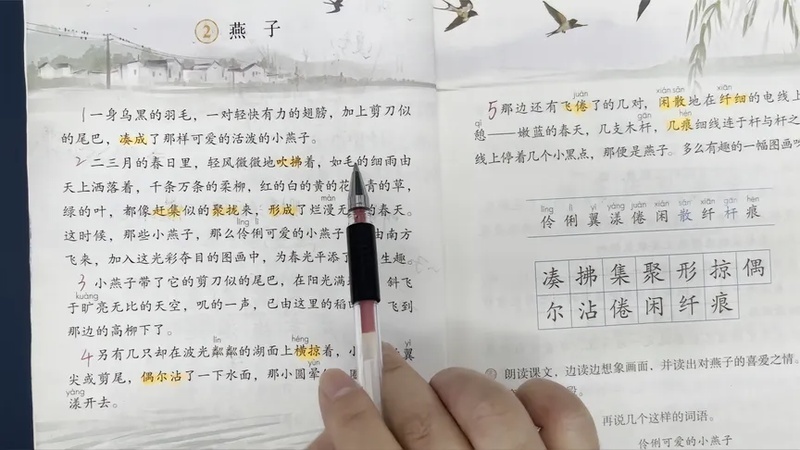 2 燕子
1 一身乌黑的羽毛，一对轻快有力的翅膀，加上剪刀似
的尾巴，凑成了那样可爱的活泼的小燕子。
2 二三月的春日里，轻风微微地吹拂着，如毛的细雨由
天上洒落着，千条万条的柔柳，红的白的黄的花 青的草，
màn
绿的叶，都像赶集似的聚拢来，形成了烂漫无 的春天。
líng lì
这时候，那些小燕子，那么伶俐可爱的小燕子 由南方
飞来，加入这光彩夺目的图画中，为春光平添了 生趣。
3 小燕子带了它的剪刀似的尾巴，在阳光满 斜飞
kuàng
于旷亮无比的天空，叽的一声，已由这里的稻 飞到
那边的高柳下了。
lín héng yì
4 另有几只却在波光粼粼的湖面上横掠着，小 翼
yùn
尖或剪尾，偶尔沾了一下水面，那小圆晕
yàng
漾开去。
juàn xián sǎn xiān
5 那边还有飞倦了的几对，闲散地在纤细的电线上
qì hén
憩——嫩蓝的春天，几支木杆，几痕细线连于杆与杆之
线上停着几个小黑点，那便是燕子。多么有趣的一幅图画
líng lì yì yàng juàn xián sǎn xiān gān hén
伶 俐 翼 漾 倦 闲 散 纤 杆 痕
凑 拂 集 聚 形 掠 偶
尔 沾 倦 闲 纤 痕
朗读课文，边读边想象画面，并读出对燕子的喜爱之情。
再说几个这样的词语。
伶俐可爱的小燕子